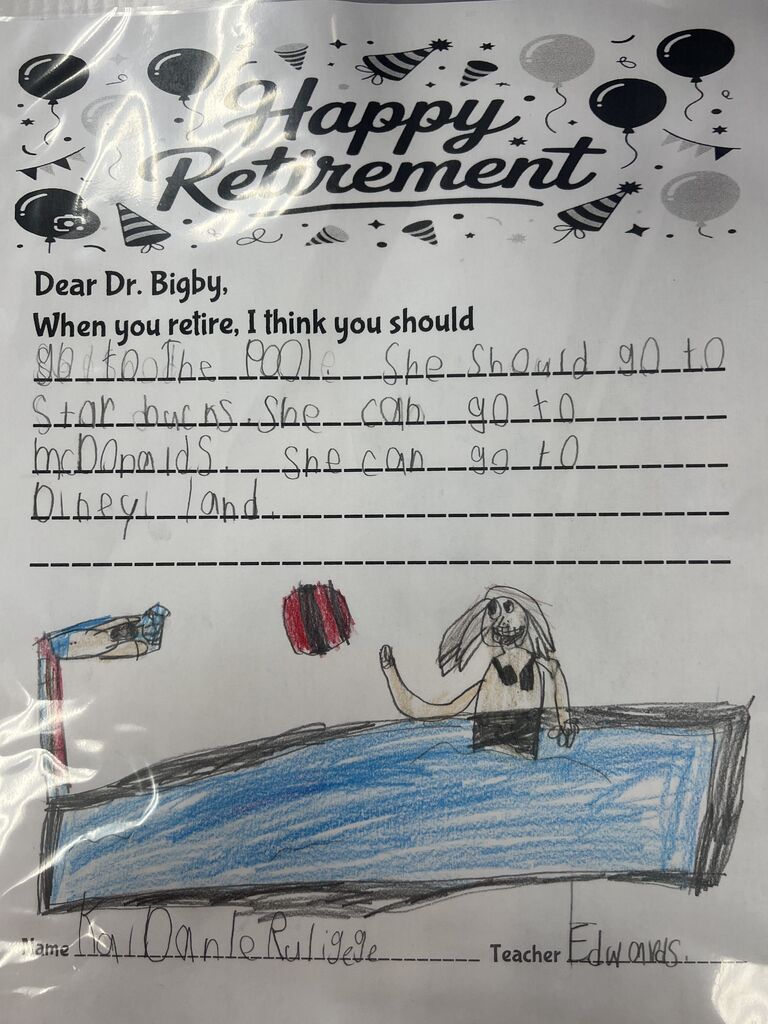 Happy
Retirement
Dear Dr. Bigby,
When you retire, I think you should
go to The POOl. She should go to
Starbucks. She can go to
mcDOnalds. She can go to
Dineyl land.
Name Kai Dante Ruligege
Teacher Edwards.